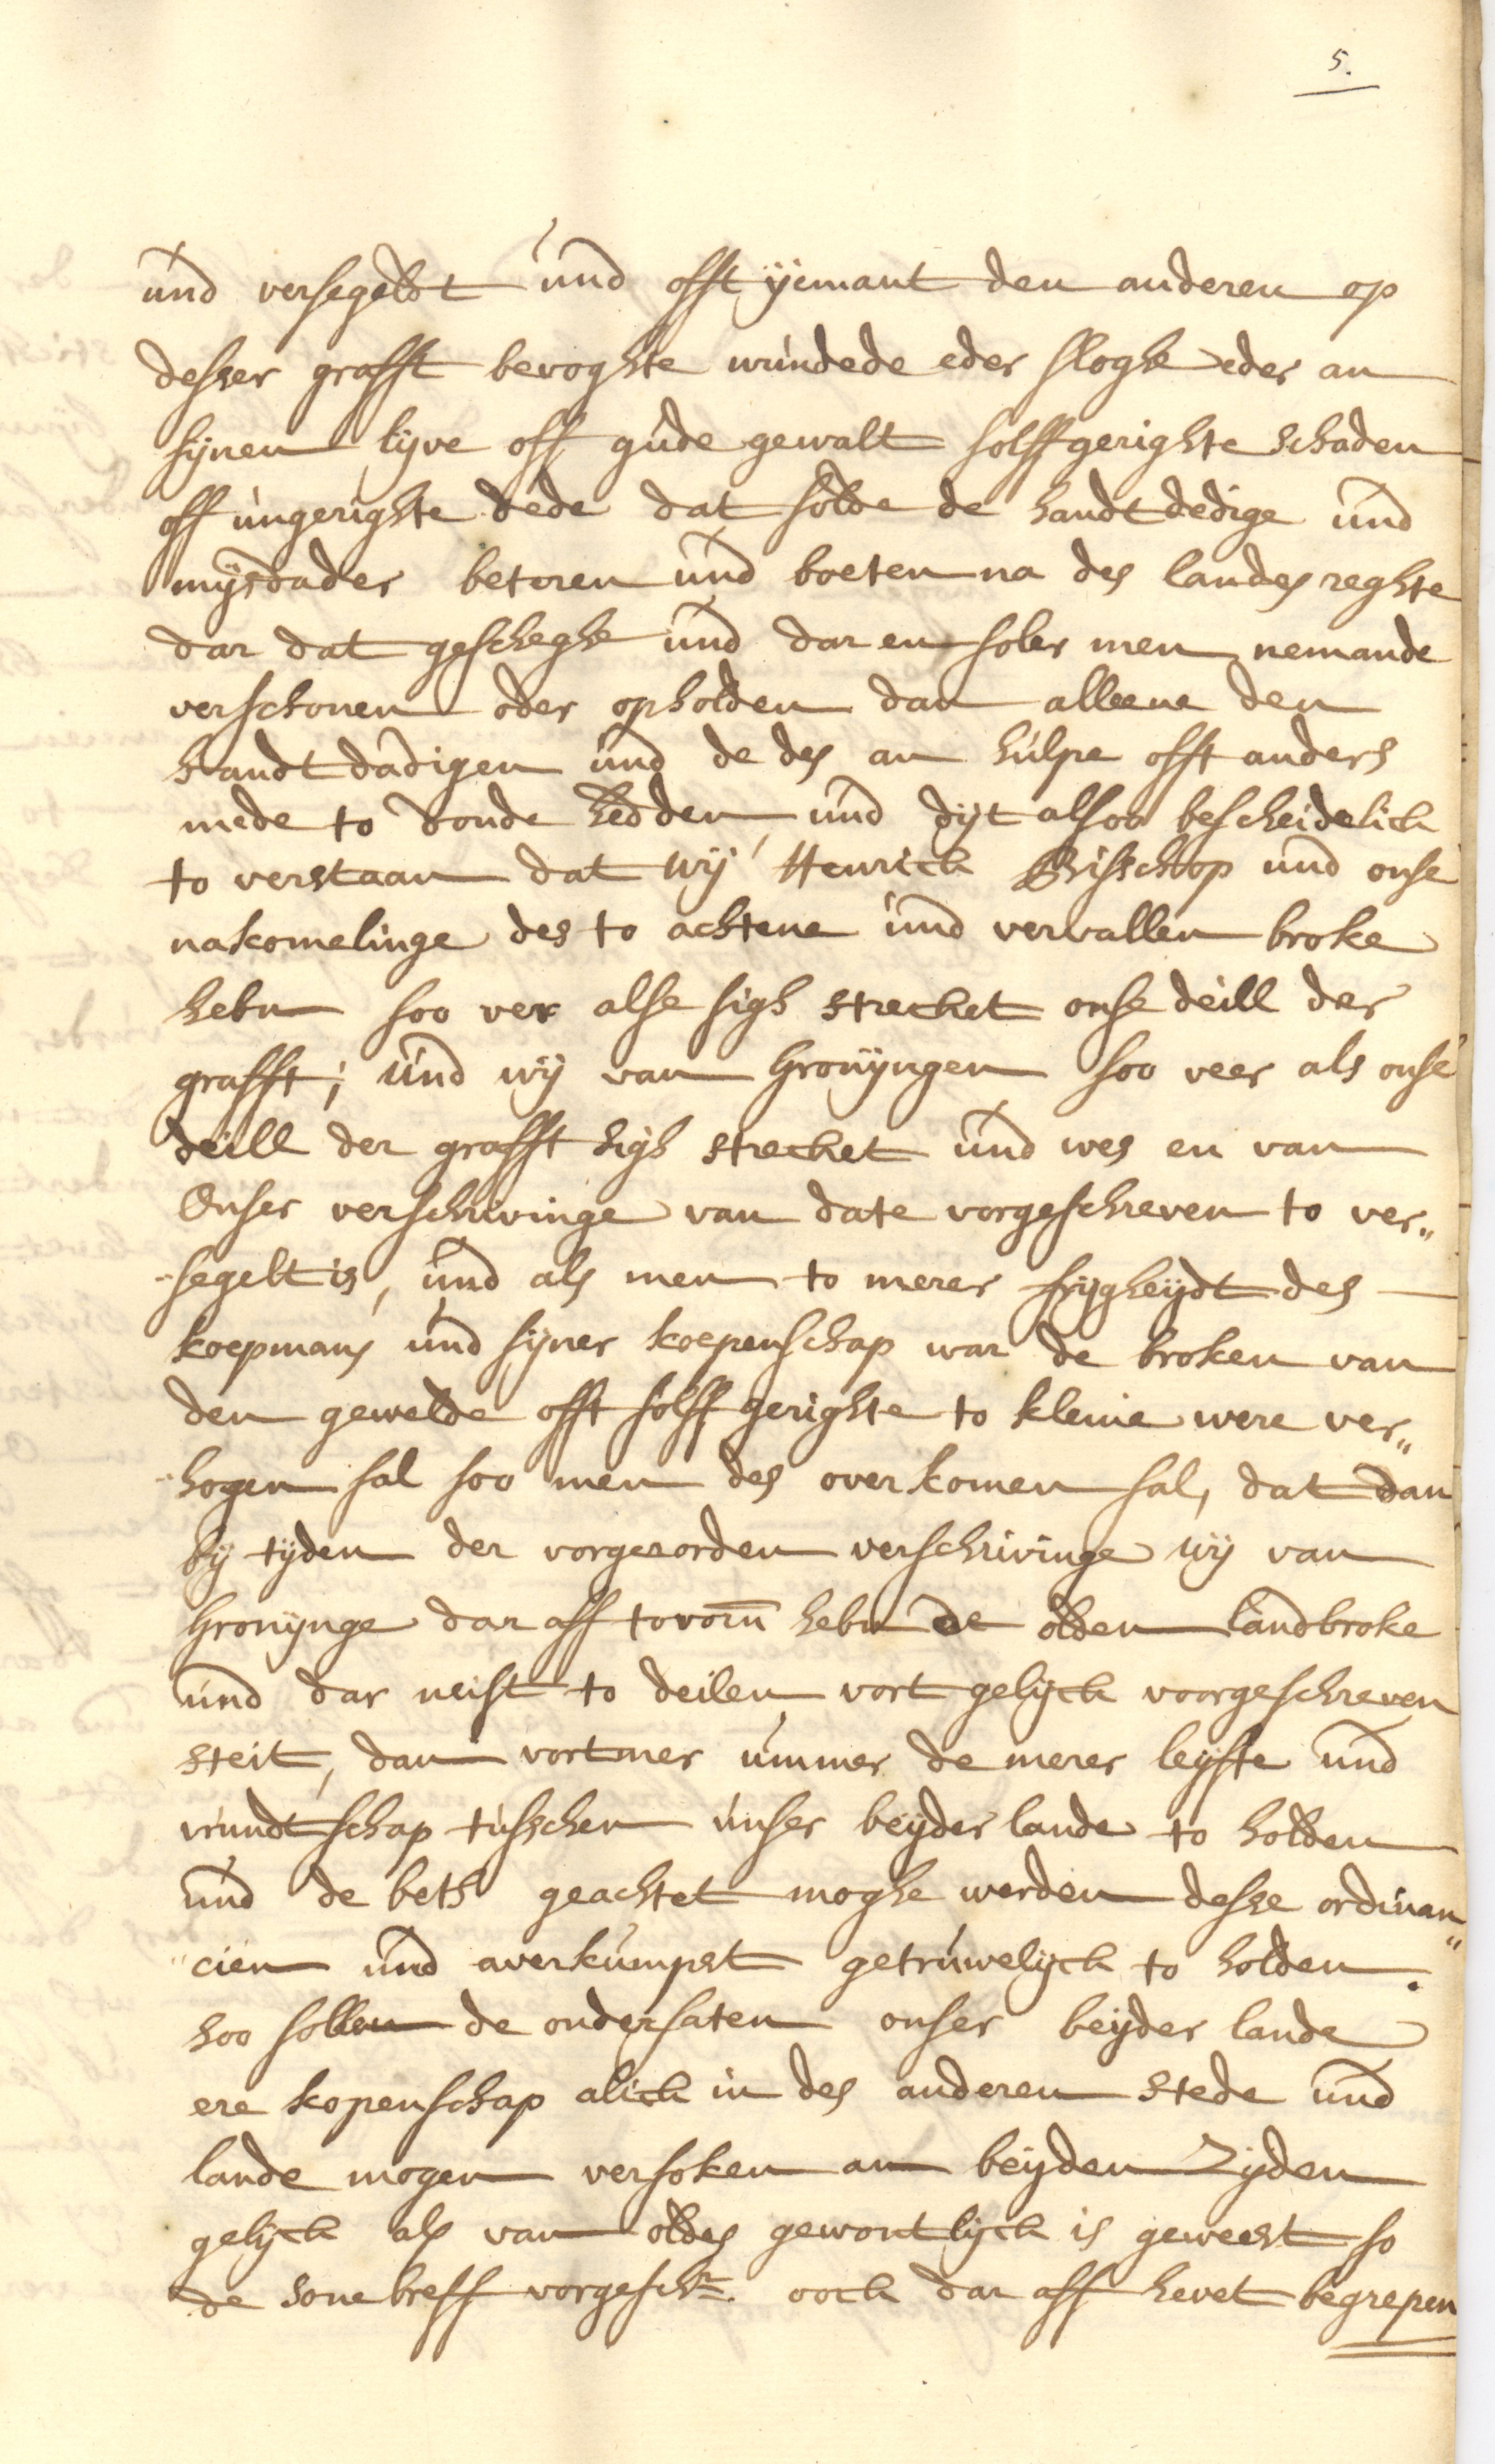 5.
und versegeldt und offt yemant den anderen op
desser grafft bevoghte wundede eder sloghe eder an
sijnen lyve off gude gewalt solffgerighte schaden
off ungerighte dede dat solde de handtdedige und
mijsdader beteren und boeten na des landes reghte
dar dat gescheghe und dar en soler men nemande
verschonen oder opholden dan alleene den
handtdadigen und de des an hulpe offt anders
mede to donde hedden, und dijt alsoo bescheidelick
to verstaan dat wij Henrick Bisschop und onse
nakomelinge des to achtene und vervallen broke
hebn soo ver alse sigh strecket onse deill der
grafft; und wij van Gronijngen soo veer als onse
deill der grafft sigh strecket und wes en van
Onser verschrivinge van date vorgeschreven to ver„
„segelt is, und als men to merer frijgheijdt des
koepmans und sijner koepenschap war de broken van
den gewelde offt solffgerighte to kleine were ver„
„hogen sal soo men des overkomen sal, dat dan
bij tijden der vorgerorden verschrivinge wij van
Gronijnge dar aff tovorn hebn de olden landbroke
und dar neist to deilen vort gelijck voorgeschreven
steit, dan vortmer ummer de merer leyfte und
vrundtschap tusschen unser beijder lande to holden
und de beth geachtet moghe werden desse ordinan„
„cien und averkumpst getruwelijck to holden.
soo sollen de ondersaten onser beijder lande
ere kopenschap alick in des anderen stede und
lande mogen versoken an beijden Zijden
gelijck als van oldes gewontlijck is geweest so
de sonebreff vorgeschr. ock dar aff hevet begrepen